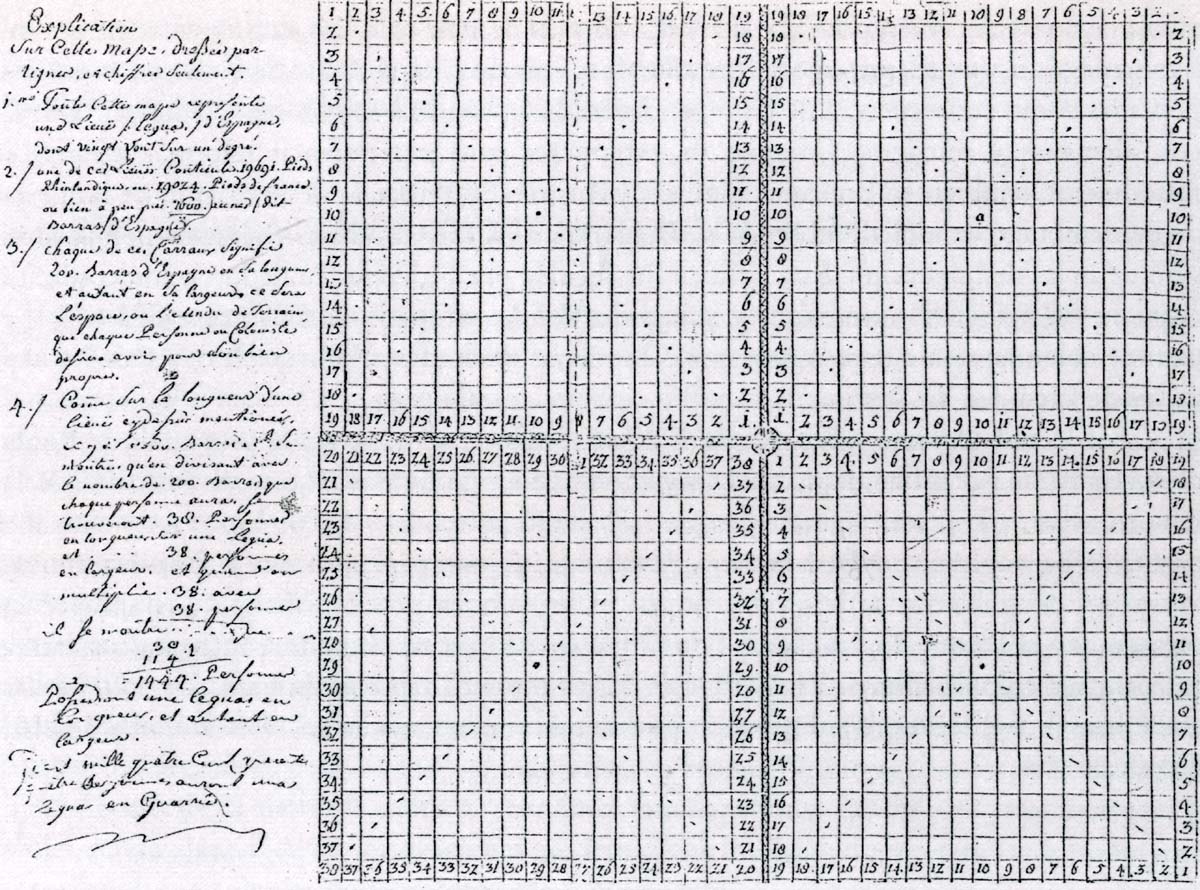 Explication
Sur Cette Mape, dreßée par
lignes, et chiffres Seulement
1. Toute Cette mape represente
une Lieuë / legua, / d'Espagne,
dont vingt font Sur un degré
2. / une de ces Lieues Contient 19691. Pieds
Rhinlandique, ou 19024. Pieds de france
ou bien à peu près 7600. / dit
Barras / d'Espagne
3. / Chaque de ces Carraux Signifie
200. Barras d'Espagne en Sa longueur,
et autant en Sa largeur, ce Sera
l'éspace, ou l'etendu de Terrain
que chaque Personne ou Coloniste
avoir pour bien
propre.
4. / Come Sur la longueur d'une
lieue cy depuis mentionée
Barras il Se
montre qu'en divisant avec
le nombre de 200. Barras que
chaque personne aura, Se
trouveront 38. Personnes
en longueur Sur une legua,
et 38 personnes
en largeur et
multiplie 38. avec
38. personne
il Se montre que
304
114
1444. Personnes
une leguas en
longueur, et autant en
largeur
C'est mille quatre Cent
Personnes
legua en Quarrée
1 2 3 4 5 6 7 8 9 10 11 13 14 15 16 17 18 19 19 18 17 16 15 13 12 11 10 9 8 7 6 5 4 3 2
2 18 18 2
3 17 17 3
4 16 16 4
5 15 15 5
6 14 14 6
7 13 13 7
8 12 12 8
9 11 11 9
10 10 10 a 10
11 9 9 11
12 8 8 12
13 7 7 13
14 6 6 14
15 5 5 15
16 4 4 16
17 3 3 17
18 2 2
19 18 17 16 15 14 13 12 11 10 9 8 7 6 5 4 3 2 1. 1. 2 3 4 5 6 7 8 9 10 11 12 13 14 15 16 17 18 19
20 21 22 23 24 25 26 27 28 29 30 31 32 33 34 35 36 37 38 1 2 3 4 5 6 7 8 9 10 11 12 13 14 15 16 17 18 19
21 37 2 18
22 36 3 17
23 35 4
24 34 5 15
25 33 6 14
26 32 7 13
27 31 8 12
28 30 9 11
29 29 10 10
30 28 11 9
31 27 12 8
32 26 13 7
33 25 14 6
34 24 15 5
35 23 16 4
36 22 17 3
37 21 18 2
38 37 36 35 34 33 32 31 30 29 28 27 26 25 24 23 22 21 20 19 18 17 16 15 14 13 12 11 10 9 8 7 6 5 4 3 2 1